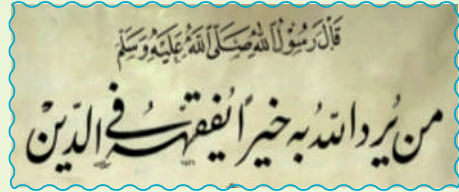 قال رسول الله صلى الله عليه وسلم
من يرد الله به خيرا يفقهه في الدين